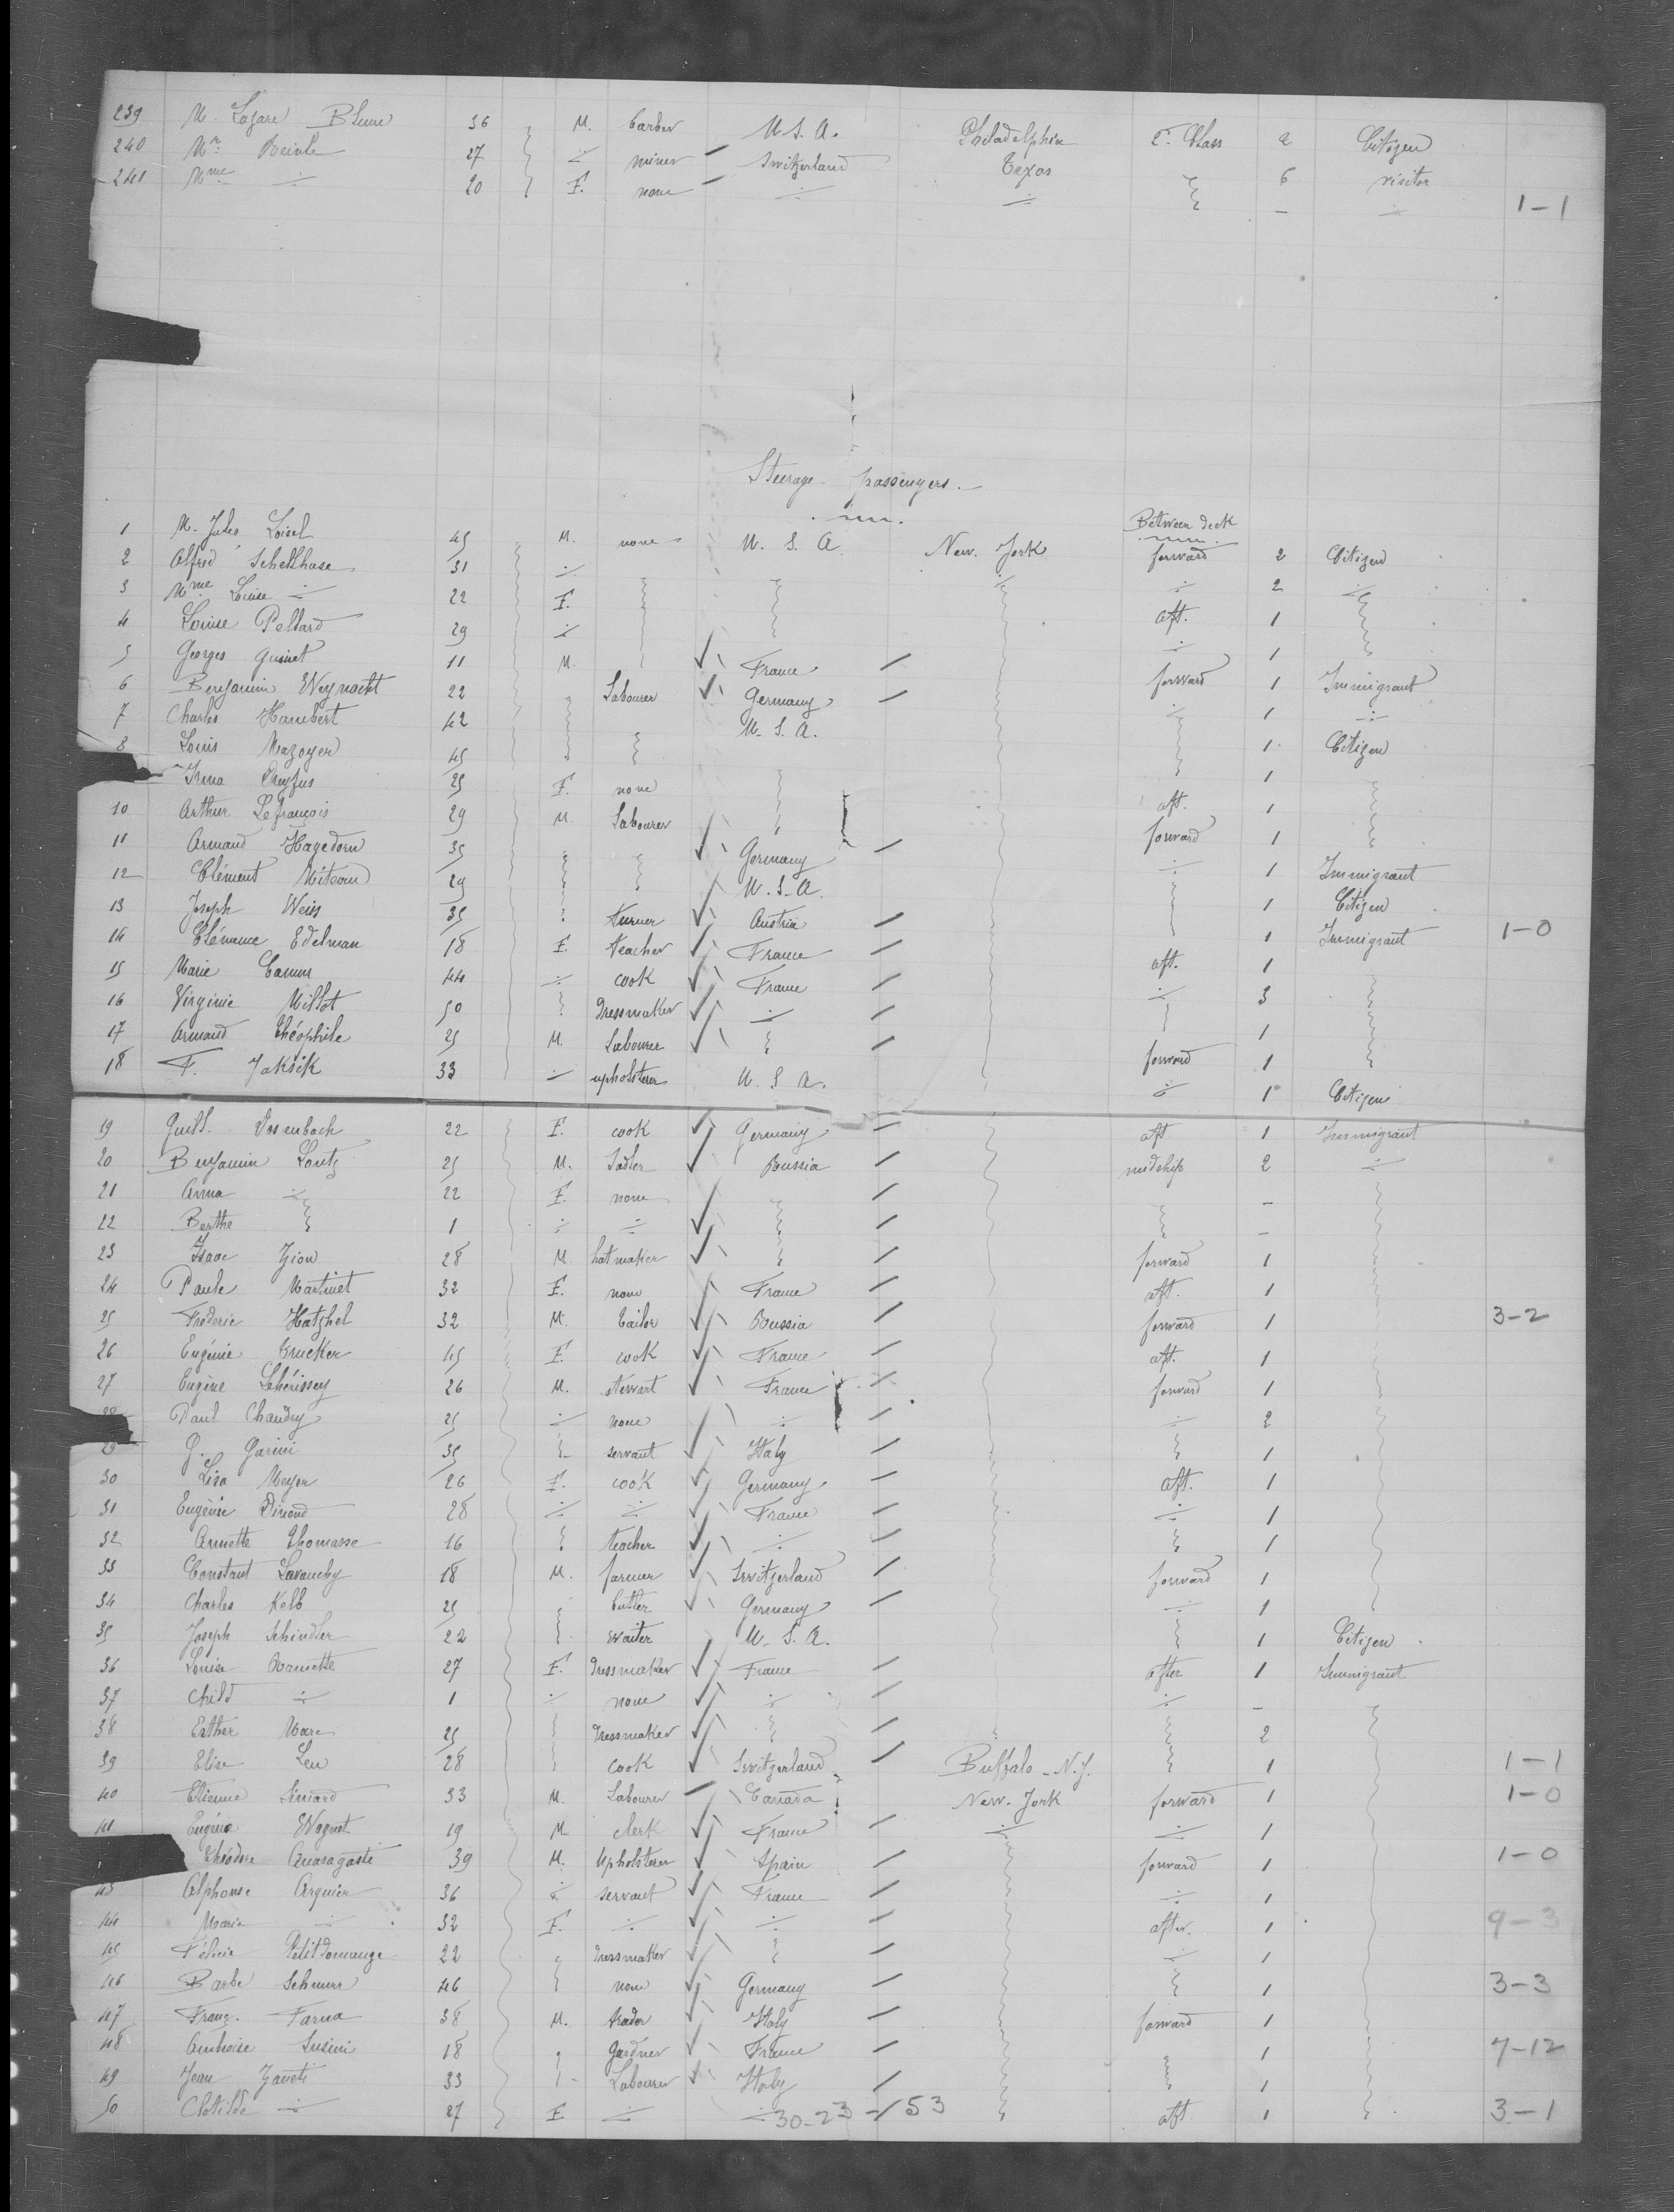 239 M. Lazare Blum 36 M. Barber U.S.A. Philadelphia 2e Class 2 Citizen
240 Mr. 27 ÷ miner Switzerland Texas 6 visitor
241 Mme ÷ 20 F. none ÷ ÷ - ÷ 1-1
Steerage passengers.
Between deck
1 M. Jules Loisel 45 M. none U.S.A. New-York forward 2 Citizen
2 Alfred Schellhase 31 ÷ ÷ ÷ 2 ÷
3 Mme Louise ÷ 22 F. aft. 1
4 Louise Pellard 29 ÷ ÷ 1
5 Georges Guinet 11 M. France forward 1 Immigrant
6 Benjamin Weynacht 22 Labourer Germany ÷ 1 ÷
7 Charles Hambert 42 U.S.A. 1 Citizen
8 Louis Mazoyer 45 1
Irma Dreyfus 25 F. none aft. 1
10 Arthur Lefrançois 29 M. Labourer forward 1
11 Armand Hagedorn 35 Germany ÷ 1 Immigrant
12 Clément 29 U.S.A. 1 Citizen
13 Joseph Weiss 35 turner Austria 1 Immigrant 1-0
14 Clémence Edelman 18 F. teacher France aft. 1
15 Marie 44 ÷ cook France ÷ 3
16 Virginie Millot 50 dressmaker ÷ 1
17 Armand Théophile 25 M. Labourer forward 1
18 F. Jaksik 33 ÷ upholsterer U.S.A. ÷ 1 Citizen
19 Guill. Vosenbach 22 F. cook Germany aft 1 Immigrant
20 Benjamin Loutz 25 M. Sadler Russia midship 2 ÷
21 Anna ÷ 22 F. none -
22 Berthe 1 ÷ ÷ -
23 Isaac Zion 28 M. hatmaker forward 1
24 Paule Martinet 32 F. none France aft. 1
25 Fréderic Hatzhel 32 M. Tailor Russia forward 1 3-2
26 Eugénie Brucker 45 F. cook France aft. 1
27 Eugène Lehérissey 26 M. stewart France forward 1
28 Paul Chaudry 25 ÷ none ÷ ÷ 2
29 G. Garini 35 servant Italy 1
30 Lisa Meyer 26 F. cook Germany aft. 1
31 Eugénie 28 ÷ ÷ France ÷ 1
32 Annette Thomasse 16 teacher ÷ 1
33 Constant Lavanchy 18 M. farmer Switzerland forward 1
34 Charles Kolb 25 butler Germany ÷ 1
35 Joseph Schindler 22 waiter U.S.A. 1 Citizen
36 Louise Ramette 27 F. dressmaker France after 1 Immigrant
37 child ÷ 1 ÷ none ÷ ÷ -
38 Esther Marc 25 dressmaker 2
39 Elise Leu 28 cook Switzerland Buffalo-N.Y. 1 1-1
40 Etienne Simard 33 M. Labourer Canada New-York forward 1 1-0
41 Eugène Wagnet 19 M clerk France ÷ ÷ 1
Théodore Anasagasti 39 M. Upholsterer Spain forward 1 1-0
43 Alphonse Arquier 36 ÷ servant France ÷ 1
44 Marie ÷ 32 F. ÷ ÷ after 1 9-3
45 Félicie Petitdemange 22 dressmaker ÷ 1
46 Barbe Schnurr 46 none Germany 1 3-3
47 Franz. Farna 38 M. trader Italy forward 1
48 Ambroise Susini 18 gardner France 1 7-12
49 Jean Zaneti 33 Labourer Italy 1
50 Clotilde ÷ 27 F. ÷ ÷ 30-23-/53 aft 1 3-1